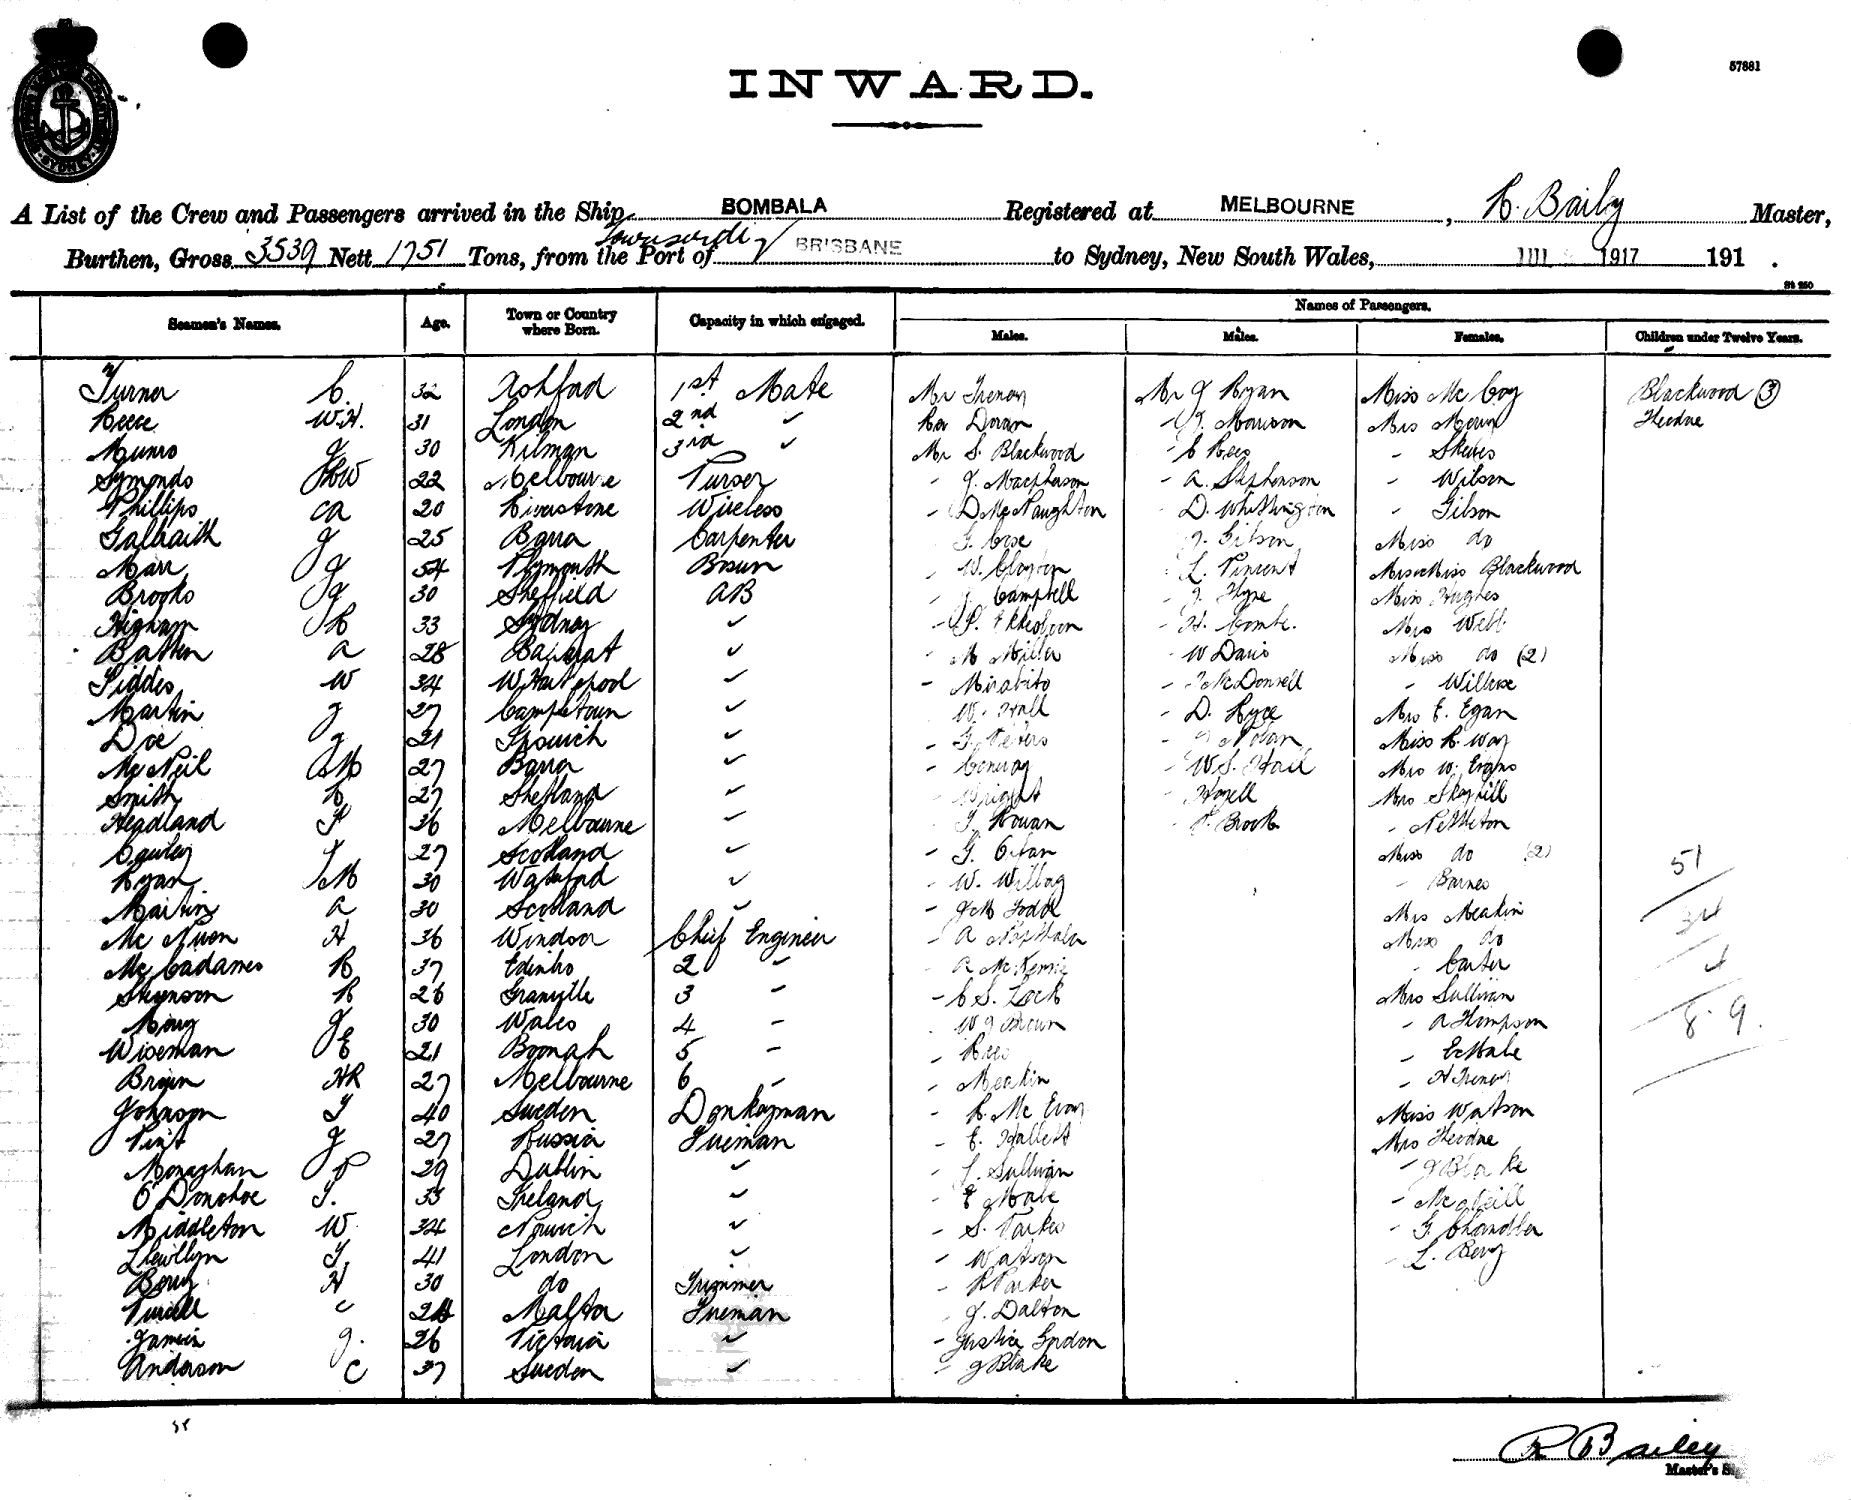 57881
INWARD.
A List of the Crew and Passengers arrived in the Ship BOMBALA Registered at MELBOURNE, R. Baily Master,
Burthen, Gross 3539 Nett 1751 Tons, from the Port of BRISBANE to Sydney, New South Wales, 1917 191 .
Seamen's Names. Age. Town or Country where Born. Capacity in which engaged. Names of Passengers.
Males. Males. Females. Children under Twelve Years.
Turner C. 32 Ashford 1st Mate Mr Mr J Ryan Miss McCoy Blackwood (3)
Reece W.H. 31 London 2nd " Doran - J. Morrison Mrs Theodore
Munro J 30 3rd " Mr S. Blackwood - C Rees - Skewes
Symonds 22 Melbourne Purser - J. Macpherson - A. Stephenson - Wilson
Phillips CA 20 Riverstone Wireless - D McNaughton - D. Whithington - Gilson
Galbraith J 25 Barra Carpenter - J. Gilson Miss do
Marr J 54 Plymouth Bosun - W. Clayton - L. Vincent Mrs & Miss Blackwood
Brooks J 30 Sheffield AB - Campbell Miss Hughes
Higham R 33 Sydney " - H. Combe. Mrs Webb
Batten A 28 " - M Miller - W Davis Miss do (2)
Siddes W 34 " - Mirabito - McDonnell
Martin J 27 " - W. Hall - D. Ryce Mrs E. Egan
Doe J 21 Ipswich " - Nolan Miss R. Way
McNeil M 27 Barra " - Conway - W.S. Hail Mrs W. Evans
Smith R 27 Shetland " - Wright Mrs
Headland P 36 Melbourne " - Rowan - Brook - Nettleton
27 Scotland " - G. Miss do (2)
Ryan M 30 Waterford " - W. - Barnes 51
Martin A 30 Scotland " - J M Todd Mrs Meakin 34
H 36 Windsor Chief Engineer - A Miss do 4
McCadames R 37 Edinbro 2 " - A McKenzie - Carter
Stevenson R 26 Granville 3 " - C S. Lock Mrs Sullivan 8.9.
J 30 Wales 4 - W J Brown - A Thompson
Wiseman E 21 Boonah 5 - - Rees - E Mabe
HR 27 Melbourne 6 - - Meakin - H
Johnson J 40 Sweden Donkeyman - R. McEvoy Miss Watson
J 27 Russia Fireman - E. Hallett Mrs Theodore
Monaghan P 29 Dublin " - J. Sullivan - J Blake
O'Donohoe J. 33 Ireland " - E Mabe - McNeill
Middleton W. 34 Norwich " - S. Parkes - G. Chandler
Llewllyn J 41 London " - Watson - L. Berry
Berry H 30 do Trimmer - R Parker
C Malta Fireman - J. Dalton
J. 26 Victoria " - Justice Gordon
Anderson C 37 Sweden " - J Blake
R Bailey
Master's